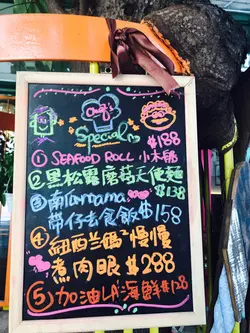 Chef's
Special
$188
① SEAFOOD ROLL 小木糖
② 黑松露蘑菇天使麵
$138
③ 南Tarmama
帶仔去食飯$158
④ 紐西兰鍋²慢慢
煮肉眼$288
⑤ 加油LA海鮮$128